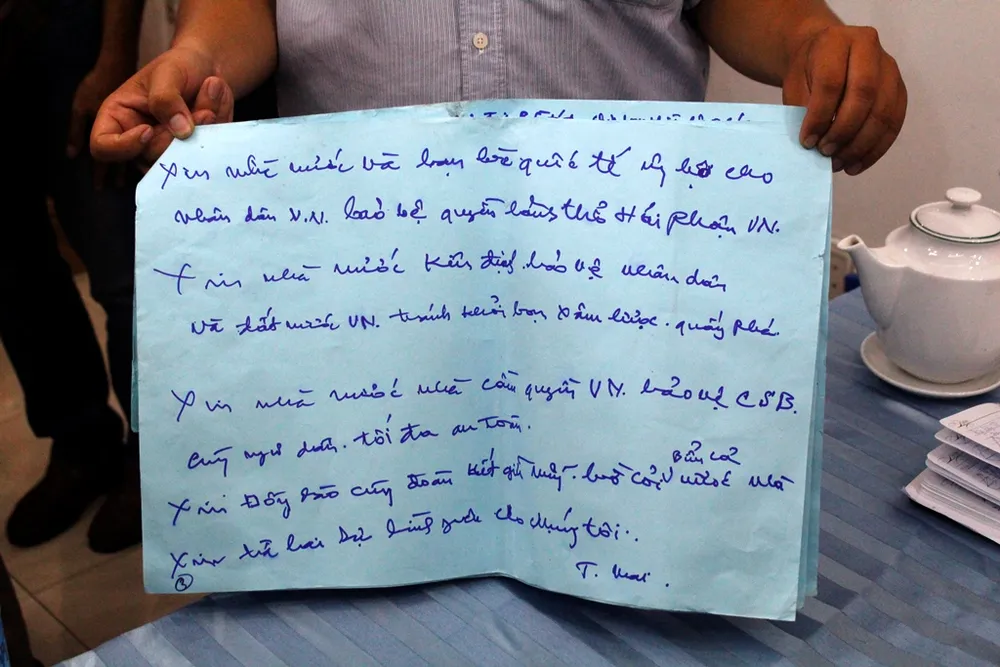 Xin nhà nước và bạn bè quốc tế ủng hộ cho
nhân dân V.N. bảo vệ quyền lảnh thổ Hải phận VN.
Xin nhà nước kiên định bảo vệ nhân dân
và đất nước VN. tránh khỏi bọn xâm lược. quấy phá.
Xin nhà nước nhà cầm quyền VN. bảo vệ CSB.
cùng ngư dân. tối đa an toàn.
Xin Đồng bào cùng đoàn kết gìn bờ cỏi nước nhà
Xin trả lại sự cho chúng tôi..
T. Mai.
3